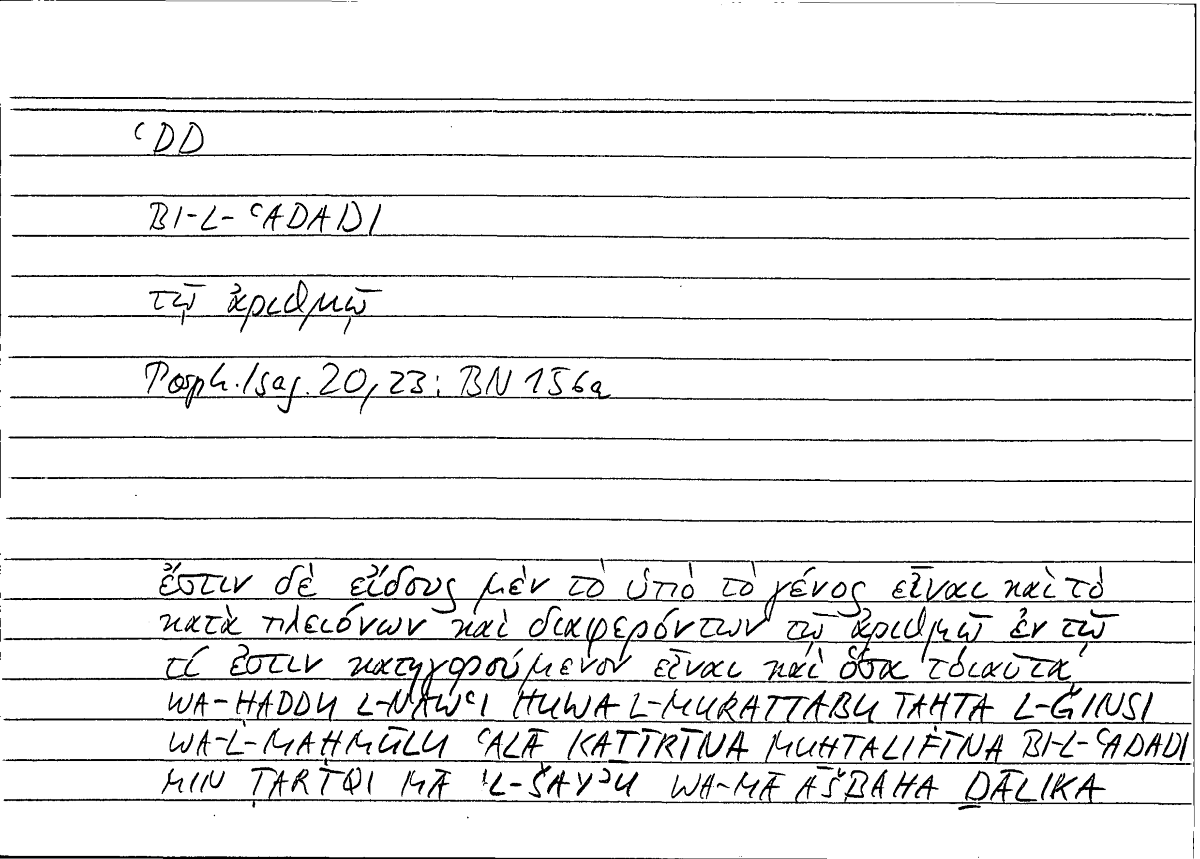 ʿDD
BI-L-ʿADADI
τῷ ἀριθμῷ
Porph. Isag. 20, 23: BN 156a
ἔστιν δὲ εἴδους μὲν τὸ ὑπὸ τὸ γένος εἶναι καὶ τὸ
κατὰ πλειόνων καὶ διαφερόντων τῷ ἀριθμῷ ἐν τῷ
τί ἐστιν κατηγορούμενον εἶναι καὶ ὅσα τοιαῦτα,
WA-ḤADDU L-NAWʿI HUWA L-MURATTABU TAḤTA L-ǦINSI
WA-L-MAḤMŪLU ʿALĀ KAṮĪRĪNA MUḪTALIFĪNA BI-L-ʿADADI
MIN ṬARĪQI MĀ ʾL-ŠAYʾU WA-MĀ AŠBAHA ḎĀLIKA